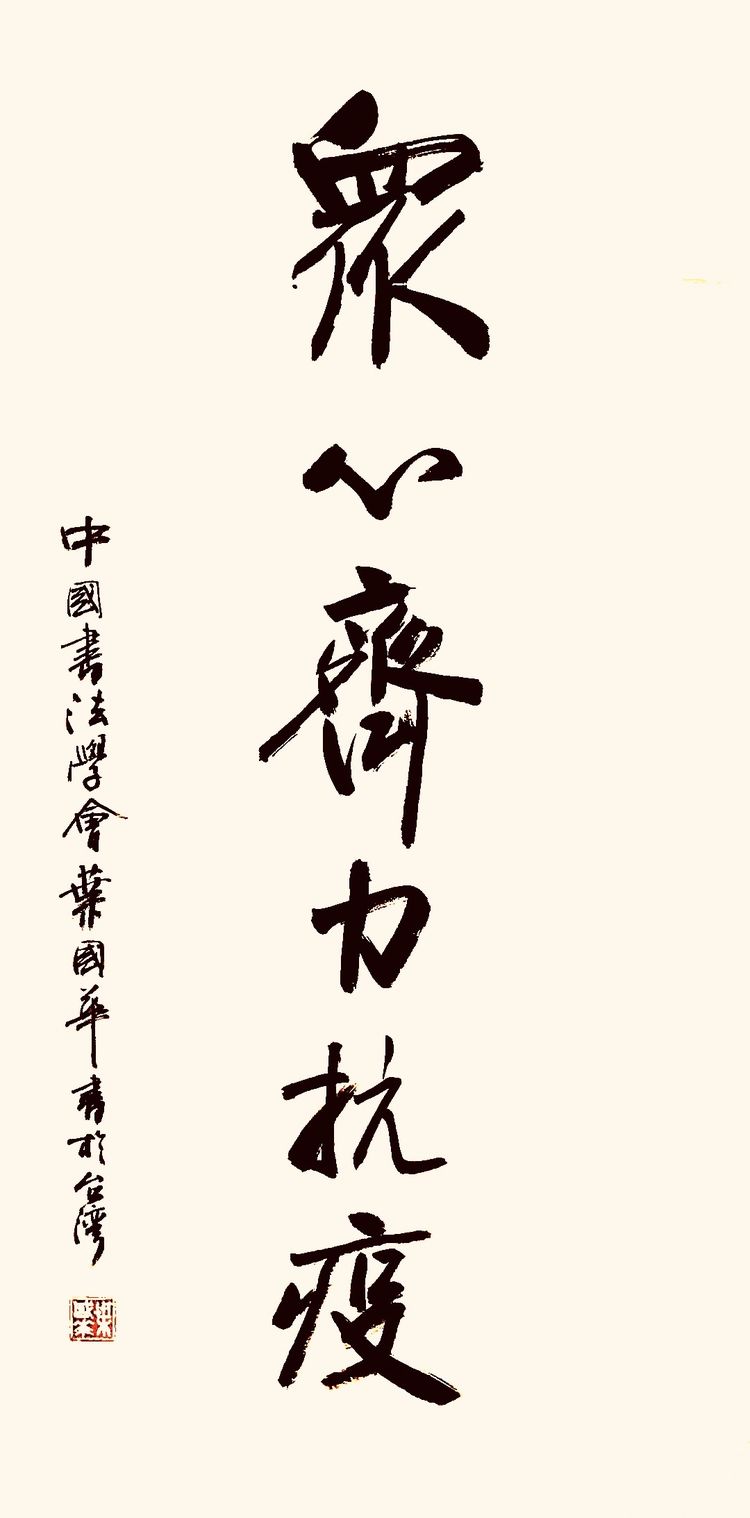 眾心齊力抗疫
中國書法學會葉國華書於台灣